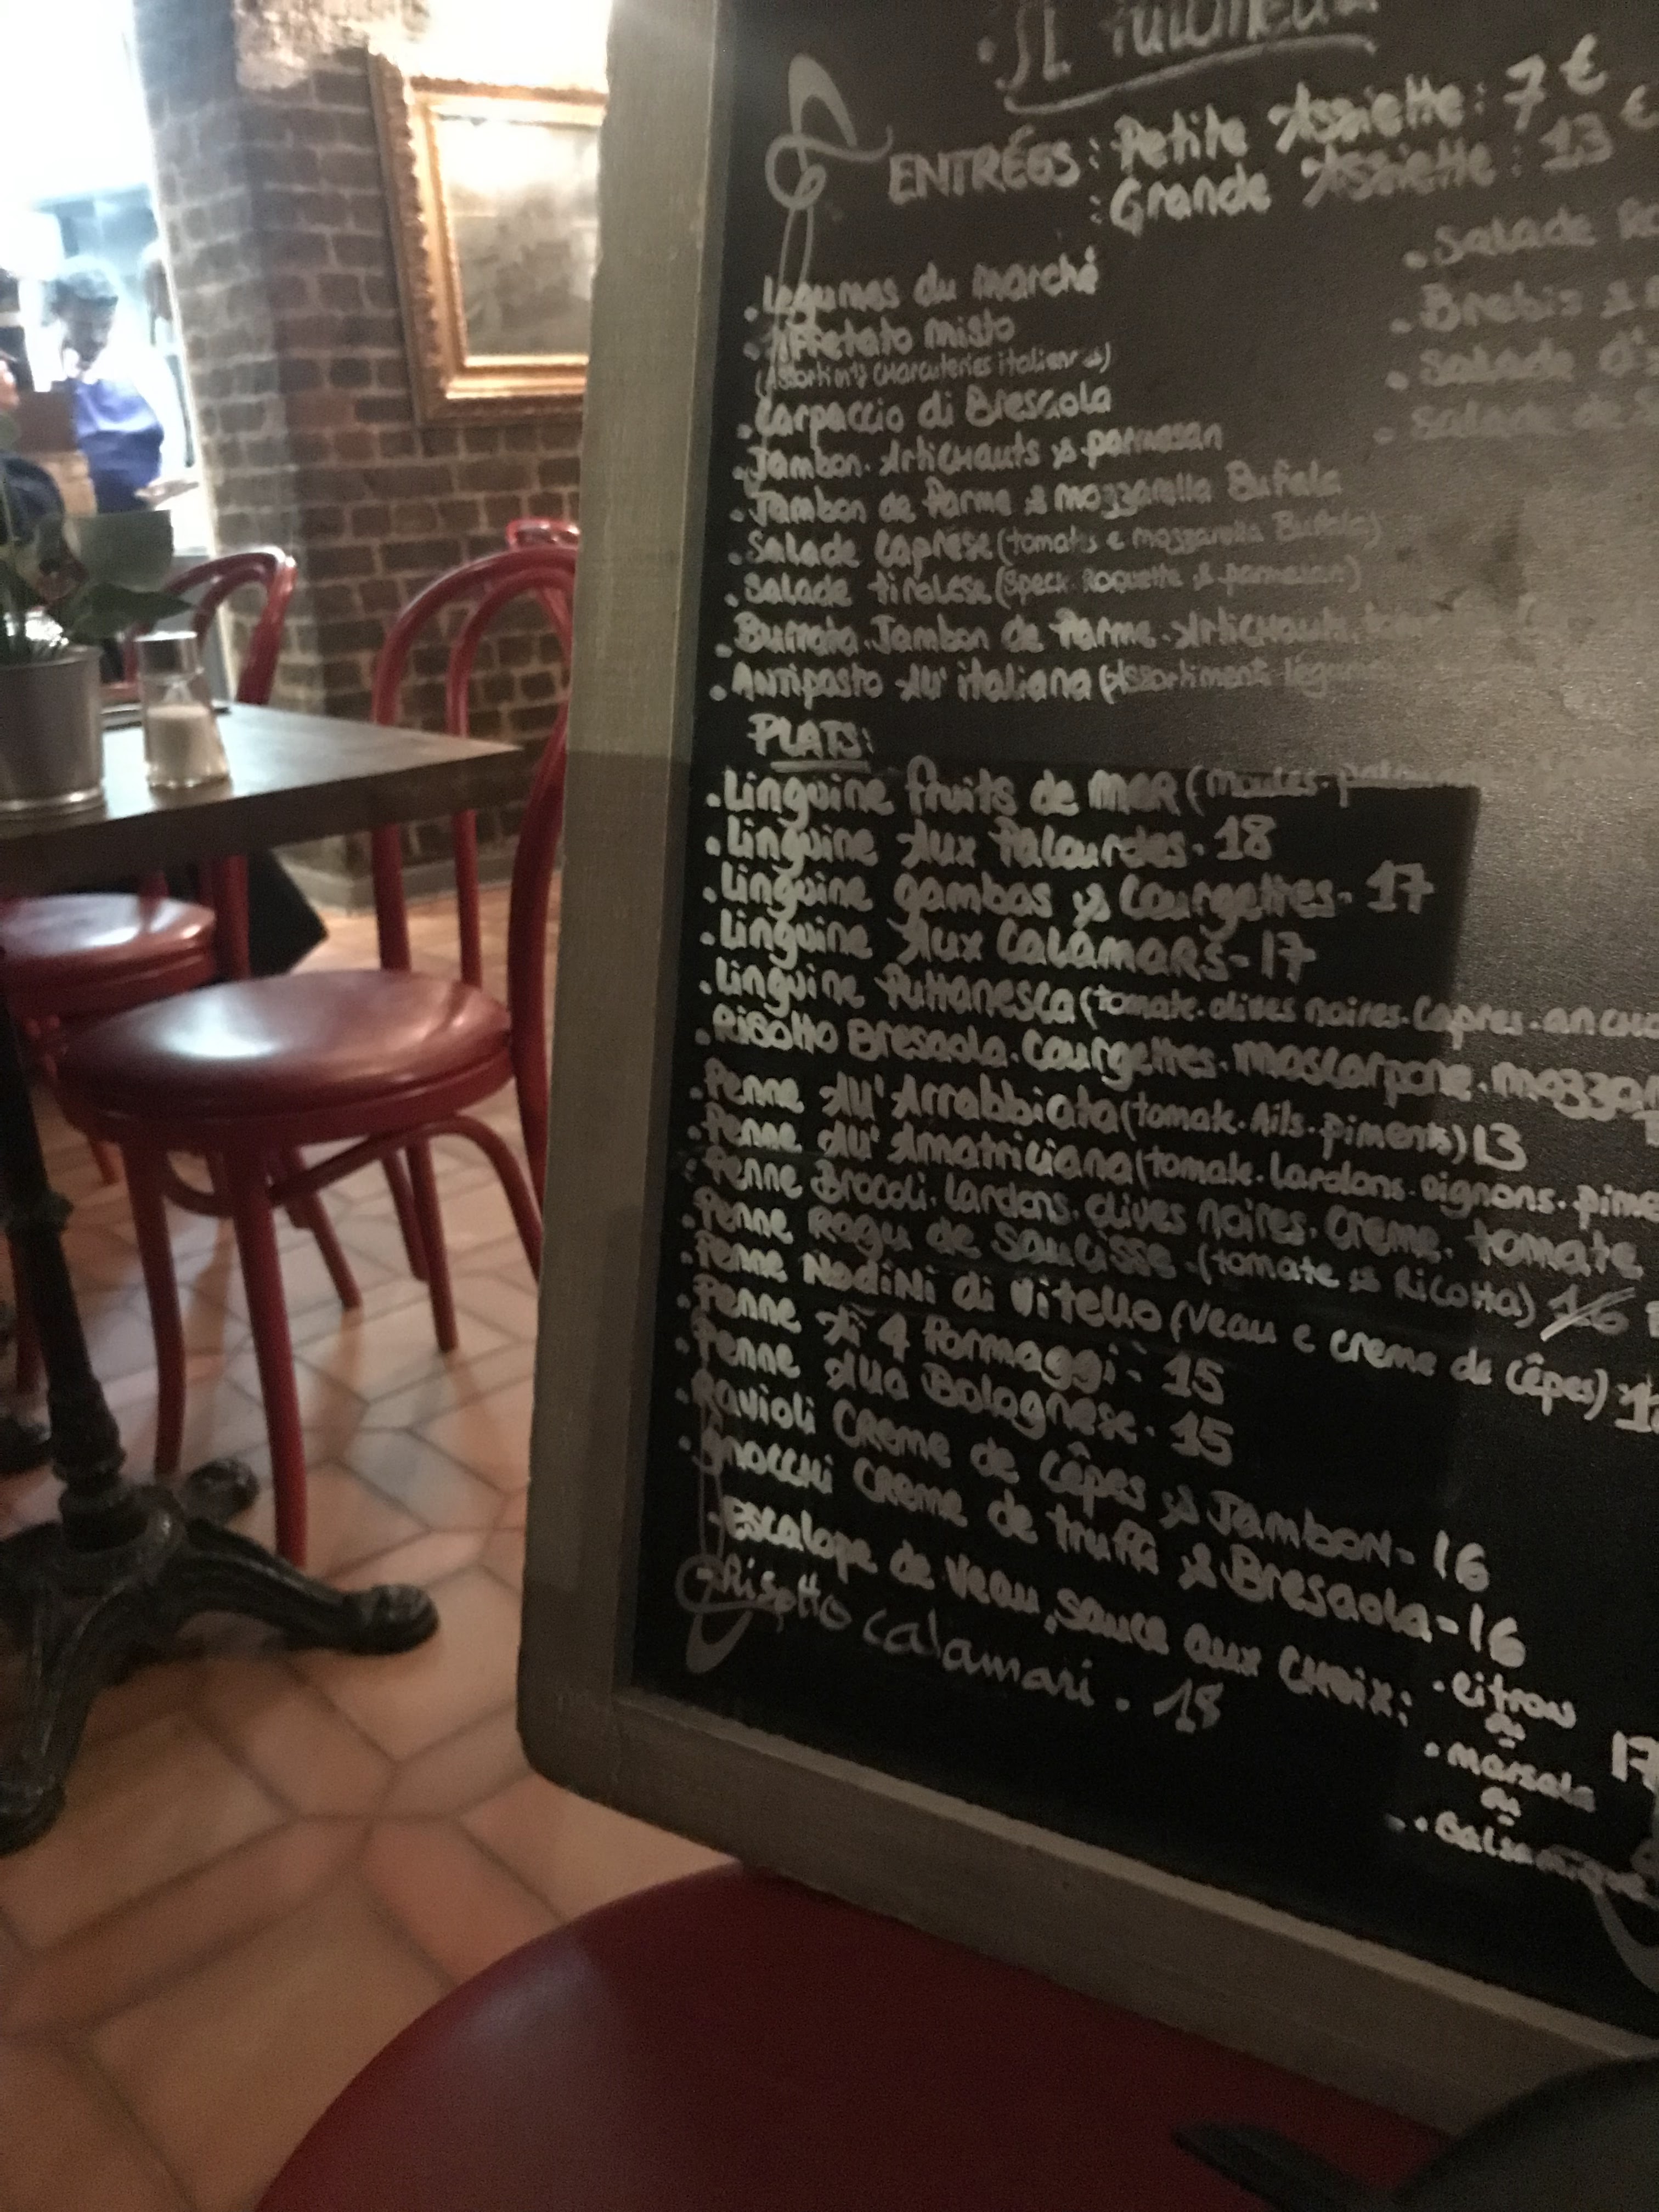 ENTRÉES: Petite Assiette: 7 €
: Grande Assiette: 13 €
. Légumes du marché
. Affetato misto
(Assortim'ts charcuteries italiennes)
. Carpaccio di Bresaola
. Jambon. Artichauts & parmesan
. Jambon de Parme & mozzarella Bufala
. Salade Caprese (tomates e mozzarella Bufala)
. Salade tirolese (Speck. Roquette & parmesan)
. Burrata. Jambon de Parme. Artichauts.
. Antipasto All' italiana (Assortiment
. Salade
. Brebis &
. Salade
. Salade de
PLATS:
. Linguine fruits de MER (Moules.
. Linguine Aux Palourdes. 18
. Linguine gambas & Courgettes. 17
. Linguine Aux CALAMARS - 17
. Linguine Puttanesca (tomate. olives noires. Capres.
. Risotto Bresaola. Courgettes. Mascarpone.
. Penne All' Arrabbiata (tomate. Ails. piments) 13
. Penne All' Amatriciana (tomate. Lardons. oignons.
. Penne Brocoli. Lardons. olives noires. Creme. tomate
. Penne Ragu de saucisse. (tomate & Ricotta) 16
. Penne NodiNi di Vitello (Veau e creme de Cêpes)
. Penne Ai 4 Formaggi - 15
. Penne Alla Bolognese. 15
. Ravioli Creme de Cêpes & Jambon - 16
. Gnocchi Creme de truffe & Bresaola - 16
- Escalope de Veau, sauce aux choix: . Citron
ou
. Marsala 17
ou
. Balsamique
- Risotto calamari. 18